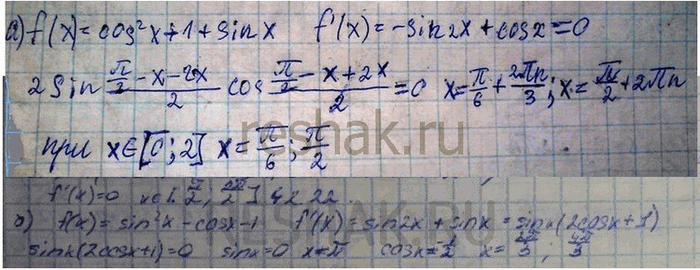 а) f(x)=cos²x+1+sinx f'(x)=-sin2x+cosx=0
2sin (π/2-x-2x)/2 cos (π/2-x+2x)/2 =0 x=π/6+2πn/3; x=π/2+2πn
при x∈[0;2] x=π/6; π/2
reshak.ru
f'(x)=0
б) f(x)=sin²x-cosx-1 f'(x)=sin2x+sinx=sinx(2cosx+1)
sinx(2cosx+1)=0 sinx=0 x=π cosx=-1/2 x=2π/3; 4π/3